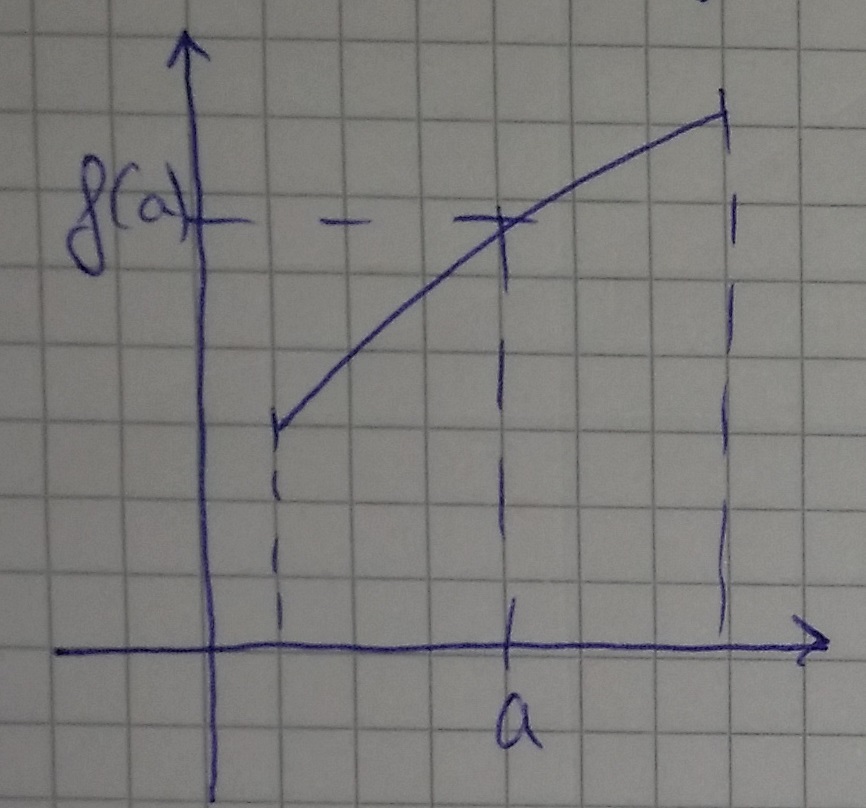 f(a)
a